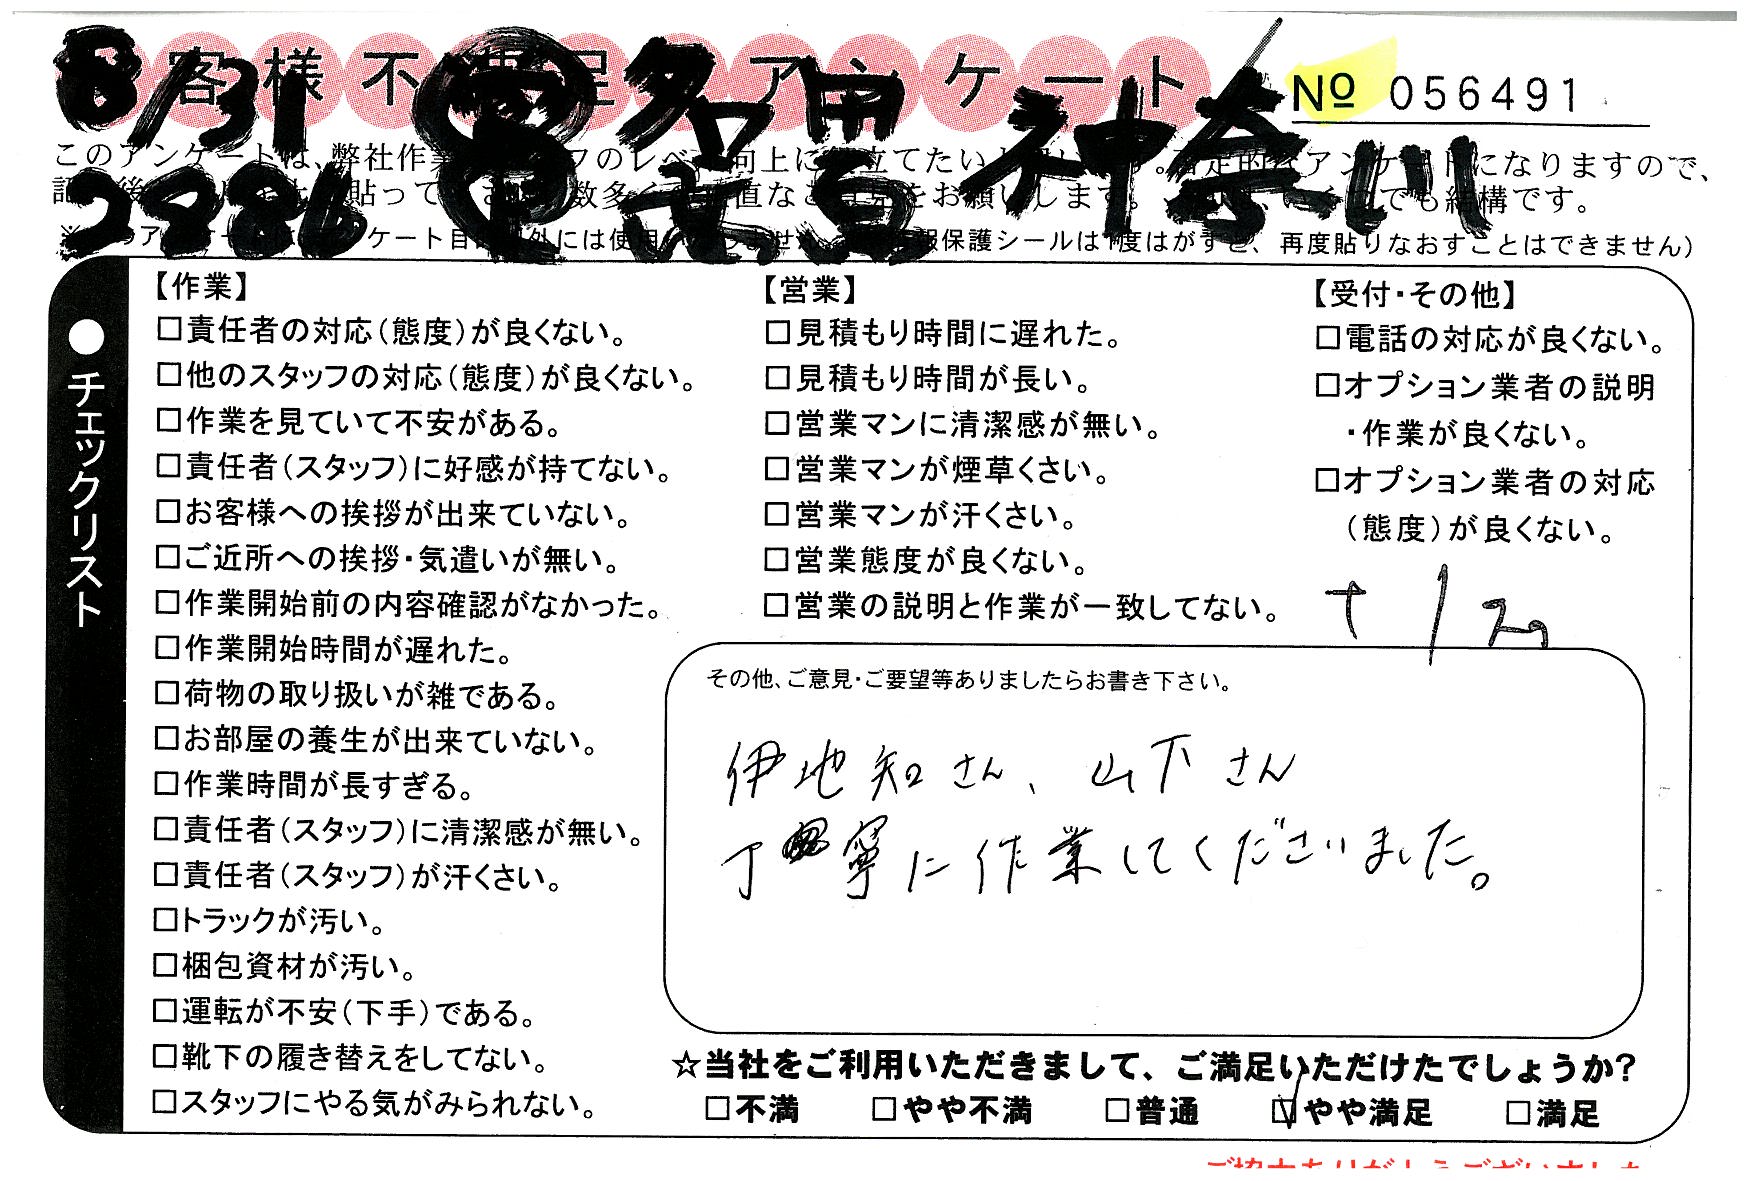 客様不満足アンケート
№ 056491
8/31 多摩 神奈川
2886 東京
このアンケートは、弊社作業
向上に
アンケートになりますので、
貼って
数多く
をお願いします。
でも結構です。
保護シールは1度はがすと、再度貼りなおすことはできません)
●チェックリスト
【作業】
□責任者の対応(態度)が良くない。
□他のスタッフの対応(態度)が良くない。
□作業を見ていて不安がある。
□責任者(スタッフ)に好感が持てない。
□お客様への挨拶が出来ていない。
□ご近所への挨拶・気遣いが無い。
□作業開始前の内容確認がなかった。
□作業開始時間が遅れた。
□荷物の取り扱いが雑である。
□お部屋の養生が出来ていない。
□作業時間が長すぎる。
□責任者(スタッフ)に清潔感が無い。
□責任者(スタッフ)が汗くさい。
□トラックが汚い。
□梱包資材が汚い。
□運転が不安(下手)である。
□靴下の履き替えをしてない。
□スタッフにやる気がみられない。
【営業】
□見積もり時間に遅れた。
□見積もり時間が長い。
□営業マンに清潔感が無い。
□営業マンが煙草くさい。
□営業マンが汗くさい。
□営業態度が良くない。
□営業の説明と作業が一致してない。
【受付・その他】
□電話の対応が良くない。
□オプション業者の説明
・作業が良くない。
□オプション業者の対応
(態度)が良くない。
その他、ご意見・ご要望等ありましたらお書き下さい。
伊地知さん、山下さん
丁寧に作業してくださいました。
☆当社をご利用いただきまして、ご満足いただけたでしょうか?
□不満 □やや不満 □普通 ☑やや満足 □満足
ご協力ありがとうございました